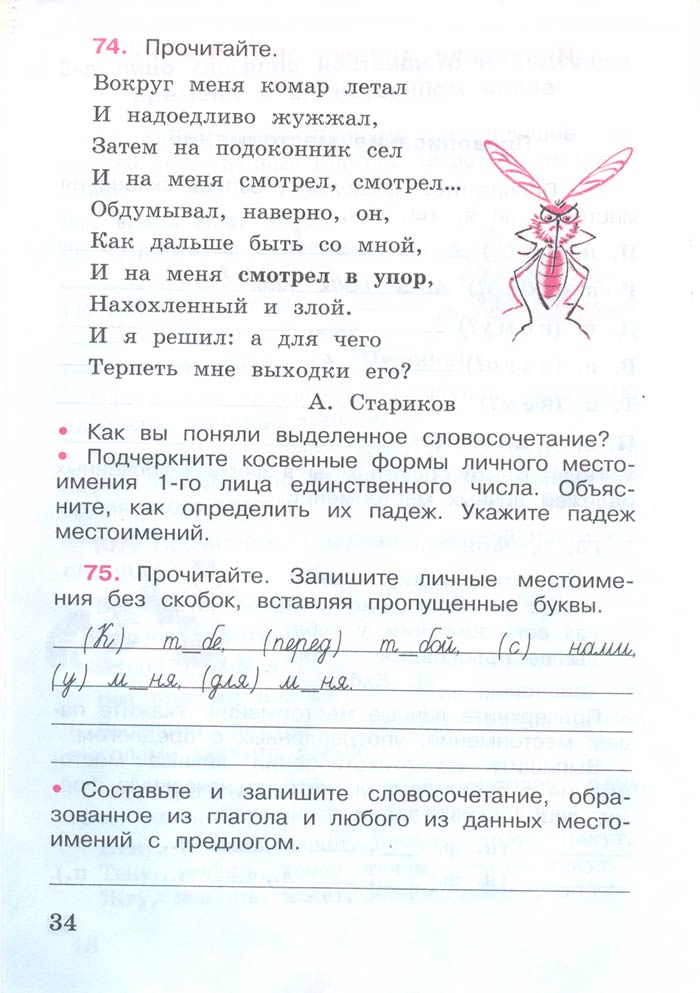 74. Прочитайте.
Вокруг меня комар летал
И надоедливо жужжал,
Затем на подоконник сел
И на меня смотрел, смотрел...
Обдумывал, наверно, он,
Как дальше быть со мной,
И на меня смотрел в упор,
Нахохленный и злой.
И я решил: а для чего
Терпеть мне выходки его?
А. Стариков
• Как вы поняли выделенное словосочетание?
• Подчеркните косвенные формы личного место-
имения 1-го лица единственного числа. Объяс-
ните, как определить их падеж. Укажите падеж
местоимений.
75. Прочитайте. Запишите личные местоиме-
ния без скобок, вставляя пропущенные буквы.
(К) т_бе, (перед) т_бой, (с) нами,
(у) м_ня, (для) м_ня.
• Составьте и запишите словосочетание, обра-
зованное из глагола и любого из данных место-
имений с предлогом.
34